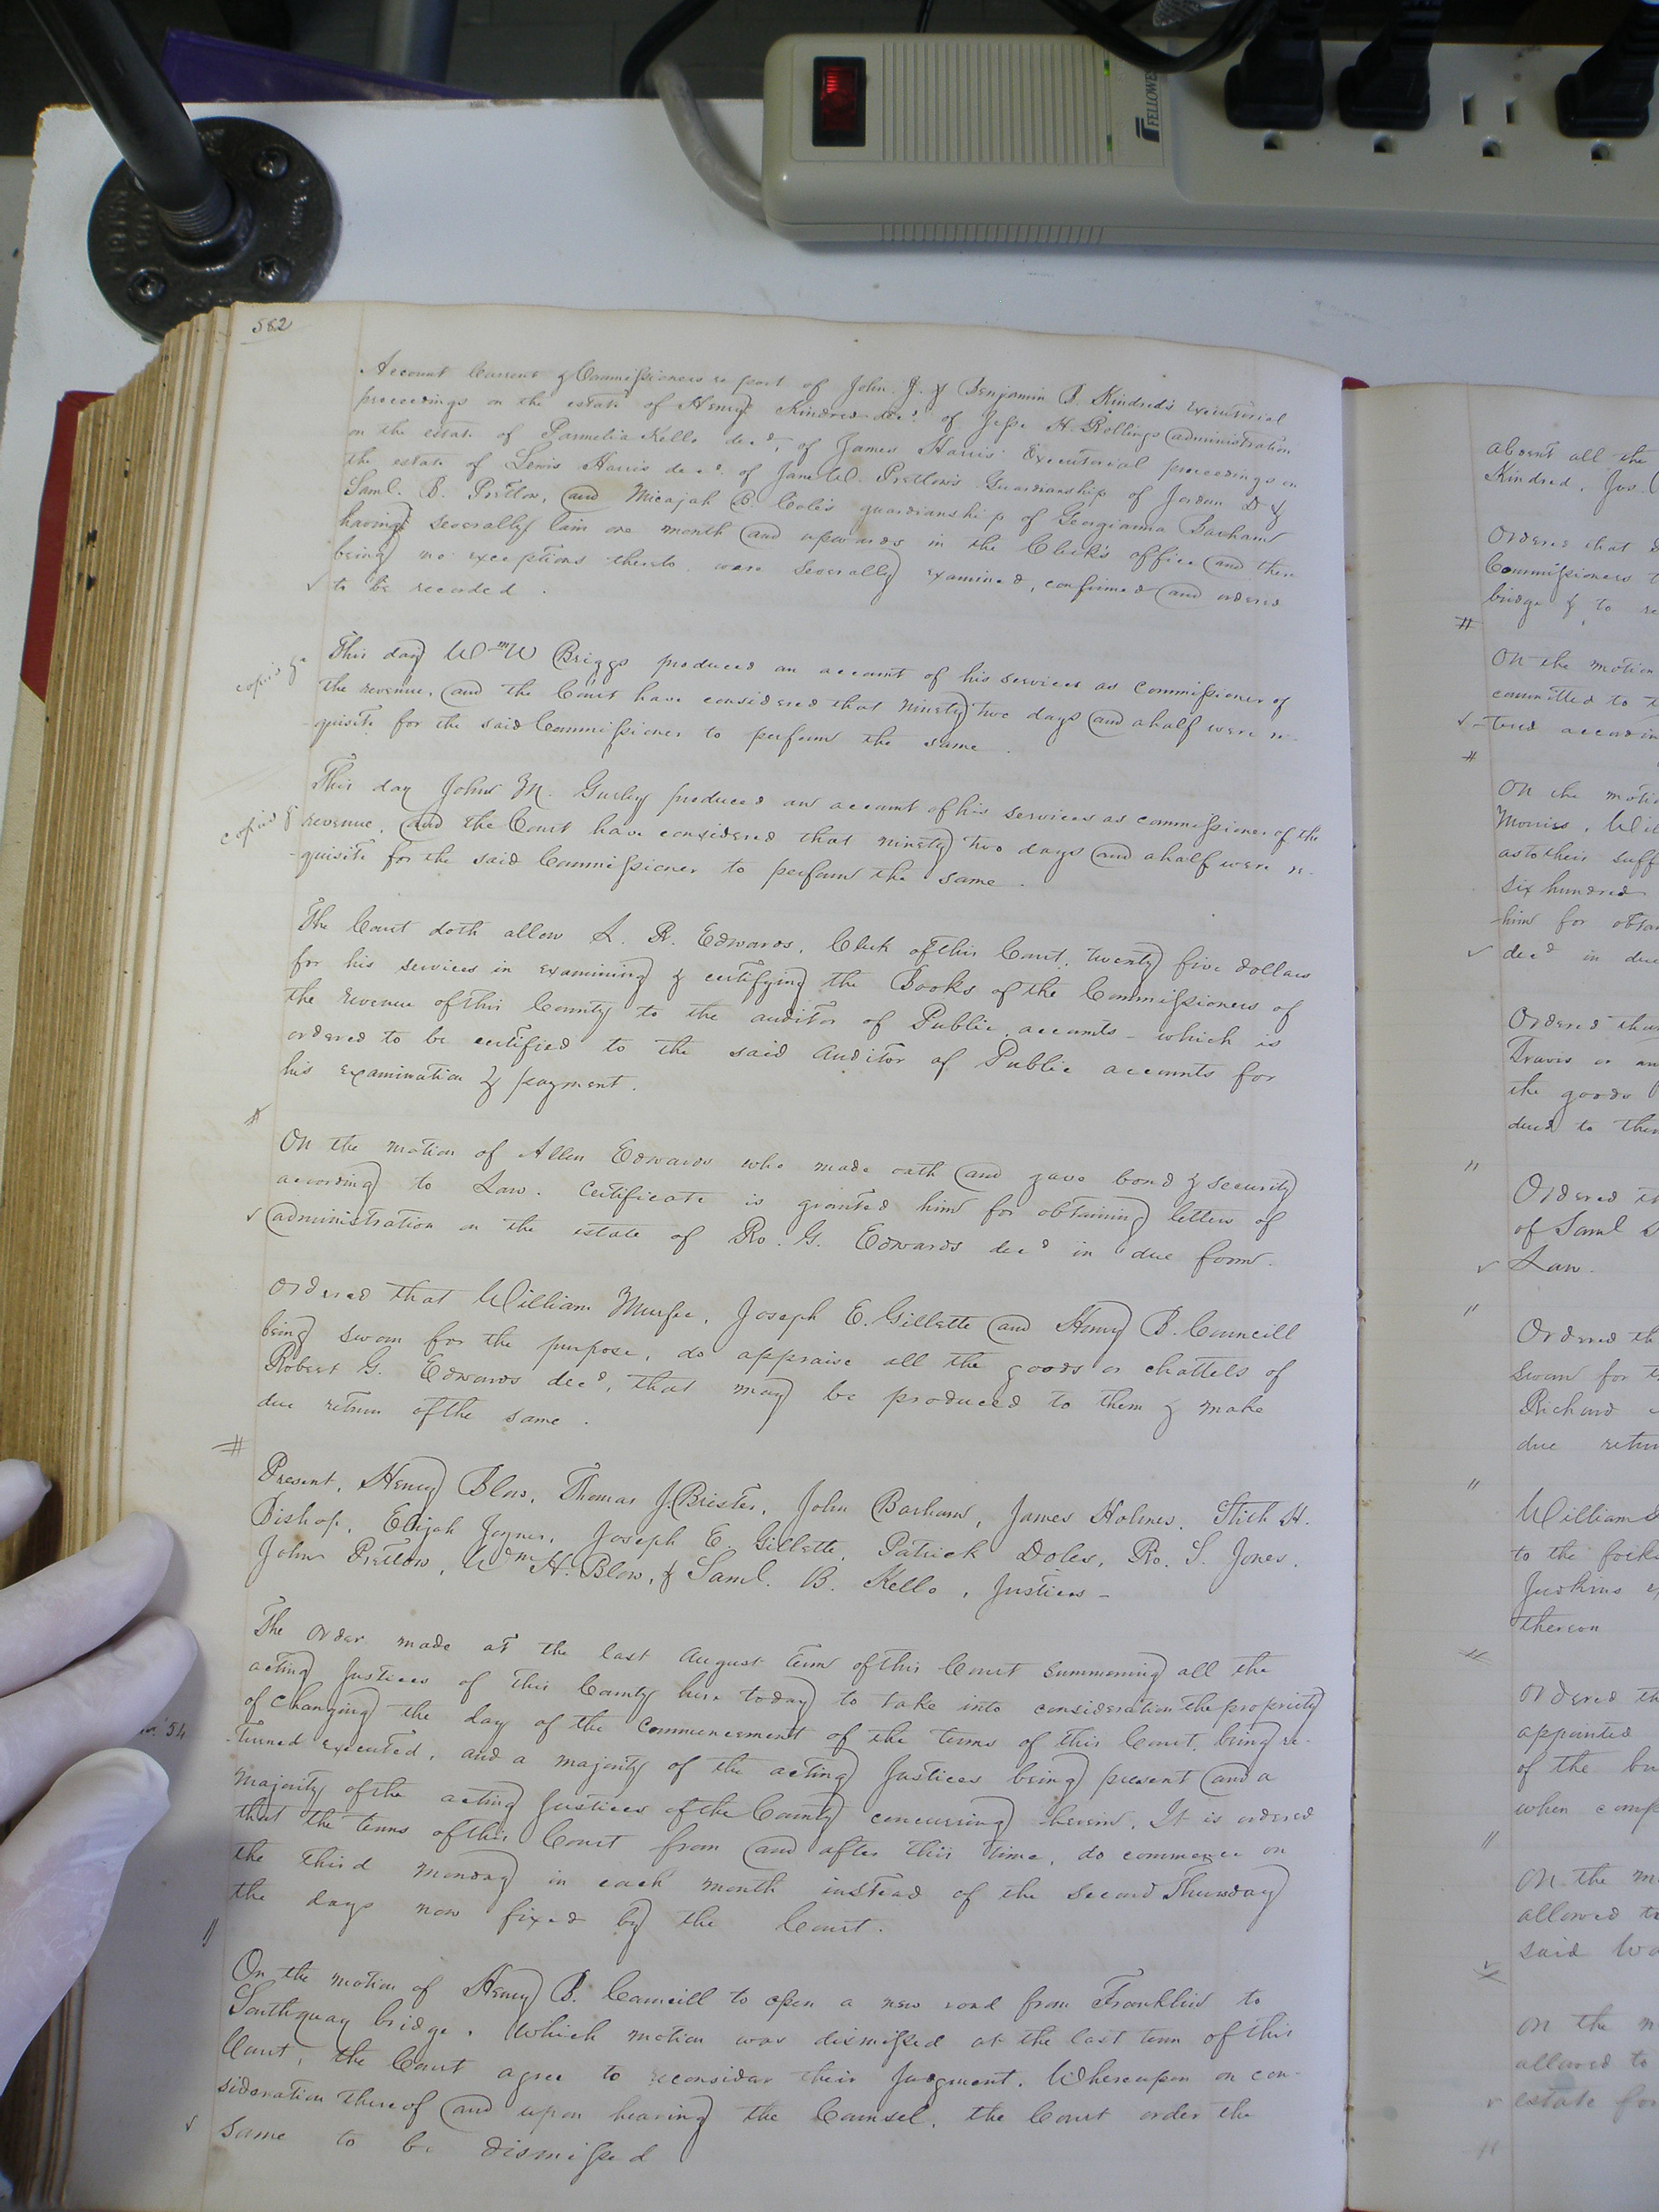 FELLOWES
582
Account Current & Commissioners report of John J. & Benjamin B. Kindred's Executorial
proceedings on the estate of Henry Kindred decd. of Jesse H. Rollings administration
on the estate of Parmelia Kello decd, of James Harris Executorial proceedings on
the estate of Lewis Harris decd. of Jane W. Pretlow's Guardianship of Jordan D &
Saml. B. Pretlow, and Micajah B. Cole's guardianship of Georgianna Barham
having severally lain one month and upwards in the Clerk's office and there
being no exceptions thereto were severally examined, confirmed and ordered
to be recorded.
This day Wm W Briggs produced an account of his services as Commissioner of
the revenue, and the Court have considered that ninety two days and a half were re-
quisite for the said Commissioner to perform the same.
copied
This day John M. Gurley produced an account of his services as commissioner of the
revenue, and the Court have considered that ninety two days and a half were re-
quisite for the said Commissioner to perform the same.
copied
The Court doth allow L. R. Edwards, Clerk of this Court, twenty five dollars
for his services in examining & certifying the Books of the Commissioners of
the revenue of this County to the auditor of Public accounts - which is
ordered to be certified to the said Auditor of Public accounts for
his examination & payment.
#
On the motion of Allen Edwards who made oath and gave bond & security
according to Law. Certificate is granted him for obtaining letters of
administration on the estate of Ro. G. Edwards decd in due form.
Ordered that William Murfee, Joseph E. Gillette and Henry B. Councill
being sworn for the purpose, do appraise all the goods or chattels of
Robert G. Edwards decd, that may be produced to them & make
due return of the same.
#
Present, Henry Blow, Thomas J. Brister, John Barham, James Holmes, Stith H.
Bishop, Elijah Joyner, Joseph E. Gillette, Patrick Doles, Ro. S. Jones,
John Pretlow, Wm H. Blow, & Saml. B. Kello, Justices -
The order made at the last August term of this Court summoning all the
acting Justices of this County here today to take into consideration the propriety
of changing the day of the commencement of the terms of this Court, being re-
turned executed, and a majority of the acting Justices being present and a
majority of the acting Justices of the County concurring herein, It is ordered
that the terms of this Court from and after this time, do commence on
the third monday in each month instead of the second Thursday
the days now fixed by the Court.
"
On the motion of Henry B. Councill to open a new road from Franklin to
Southquay bridge, which motion was dismissed at the last term of this
Court, the Court agree to reconsider their Judgment. Whereupon on con-
sideration thereof and upon hearing the Counsel, the Court order the
same to be dismissed
absent all the
Kindred, Jos.
Ordered that
Commissioners
bridge & to
#
On the motion
committed to
-tred accordin
#
On the motio
Morriss, Wil
as to their suff
six hundred
him for obtai
decd in due
Ordered that
Travis or an
the goods
duced to them
"
Ordered th
of Saml
Law.
"
Ordered th
sworn for th
Richard
due retur
"
William
to the fork
Judkins
thereon
#
Ordered th
appointed
of the br
when comp
"
On the mo
allowed to
said
On the m
allowed to
estate for
"